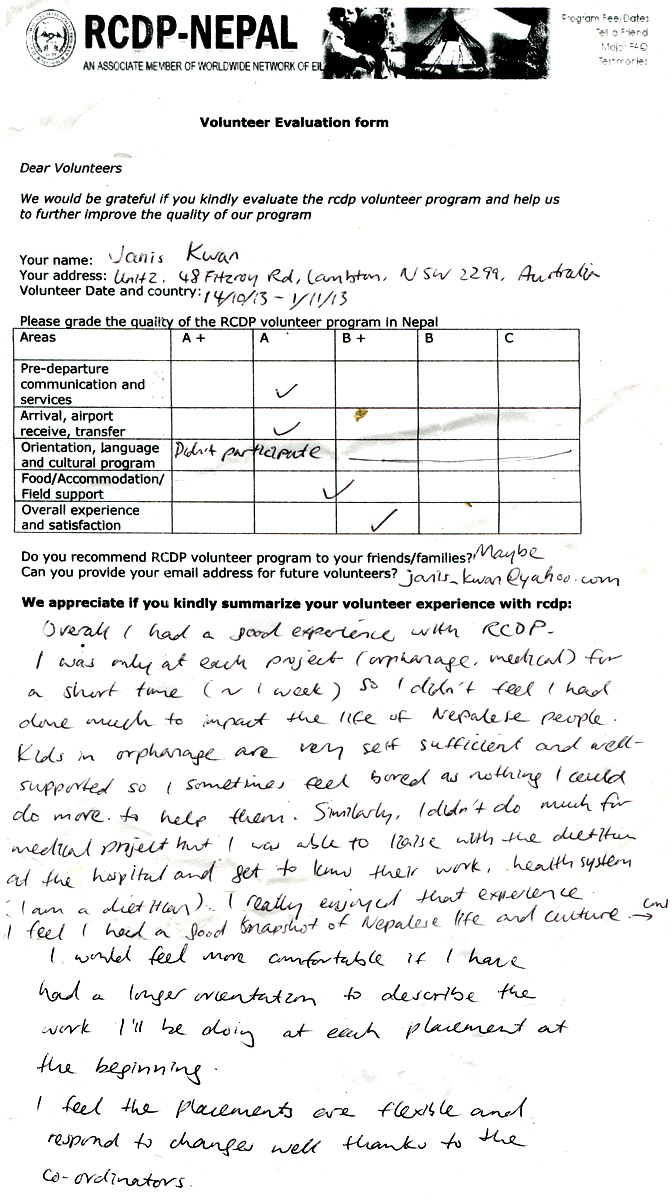 RCDP-NEPAL
AN ASSOCIATE MEMBER OF WORLDWIDE NETWORK OF EIL
Program Fee/Dates
Tell a Friend
Major FAQ
Testimonies
Volunteer Evaluation form
Dear Volunteers
We would be grateful if you kindly evaluate the rcdp volunteer program and help us
to further improve the quality of our program
Your name: Janis Kwan
Your address: Unit 2, 48 Fitzroy Rd, Lambton, NSW 2299, Australia
Volunteer Date and country: 14/10/13 - 1/11/13
Please grade the quality of the RCDP volunteer program in Nepal
Areas A + A B + B C
Pre-departure
communication and ✓
services
Arrival, airport
receive, transfer ✓
Orientation, language Didn't participate
and cultural program
Food/Accommodation/
Field support ✓
Overall experience
and satisfaction ✓
Do you recommend RCDP volunteer program to your friends/families? Maybe
Can you provide your email address for future volunteers? janis_kwan@yahoo.com
We appreciate if you kindly summarize your volunteer experience with rcdp:
Overall I had a good experience with RCDP.
I was only at each project (orphanage, medical) for
a short time (~ 1 week) so I didn't feel I had
done much to impact the life of Nepalese people.
Kids in orphanage are very self sufficient and well-
supported so I sometimes feel bored as nothing I could
do more to help them. Similarly, I didn't do much for
medical project but I was able to liaise with the dietitian
at the hospital and get to know their work, health system
(I am a dietitian). I really enjoyed that experience.
I feel I had a good snapshot of Nepalese life and culture →
I would feel more comfortable if I have
had a longer orientation to describe the
work I'll be doing at each placement at
the beginning.
I feel the placements are flexible and
respond to changes well thanks to the
co-ordinators.